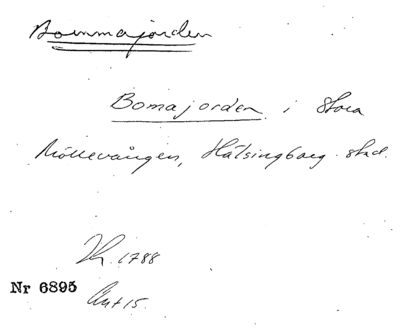 Bommajorden
Bomajorden i Stora
Möllevången, Hälsingborg stad.
1788
Nr 6895
Akt 15.